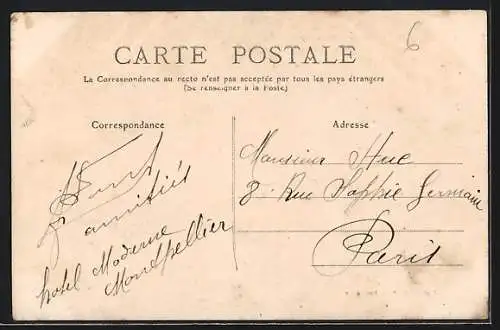 6
CARTE POSTALE
La Correspondance au recto n'est pas acceptée par tous les pays étrangers
(Se renseigner à la Poste)
Correspondance
amitiés
hotel Moderne
Montpellier
Adresse
Monsieur Hue
8 Rue Sophie Germain
Paris